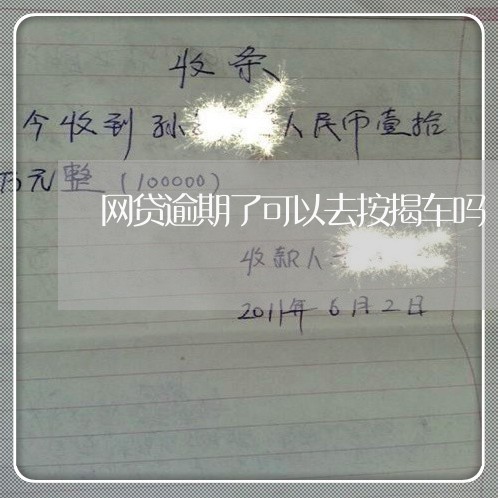 收条
今收到孙 人民币壹拾
万元整（100000）
网贷逾期了可以去按揭车吗
收款人
2011年6月2日